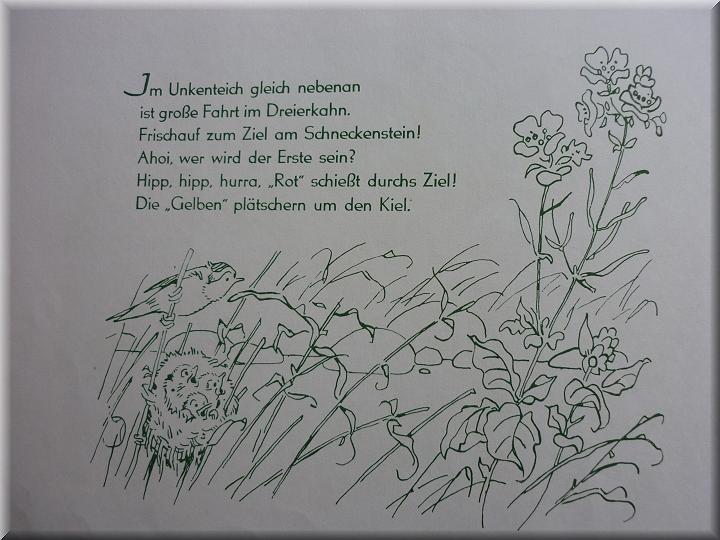 Im Unkenteich gleich nebenan
ist große Fahrt im Dreierkahn.
Frischauf zum Ziel am Schneckenstein!
Ahoi, wer wird der Erste sein?
Hipp, hipp, hurra, „Rot“ schießt durchs Ziel!
Die „Gelben“ plätschern um den Kiel.